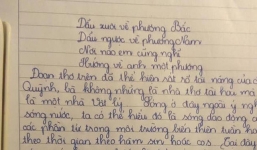 Dẫu xuôi về phương Bắc
Dẫu ngược về phương Nam
Nơi nào em cũng nghĩ
Hướng về anh một phương
Đoạn thơ trên đã thể hiện rất rõ tài năng của c
Quỳnh, bà không những là nhà thơ tài hoa mà
là một nhà Vật lý. Sóng ở đây ngoài ý nghĩ
sóng nước, ta có thể hiểu đó là sóng dao động c
các phần tử trong môi trường biến thiên tuần ho
theo thời gian theo hàm sin hoặc cos. Gai đây